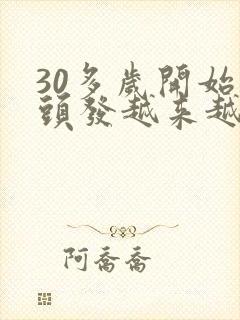 30多歲開始
頭發越来越
阿喬喬